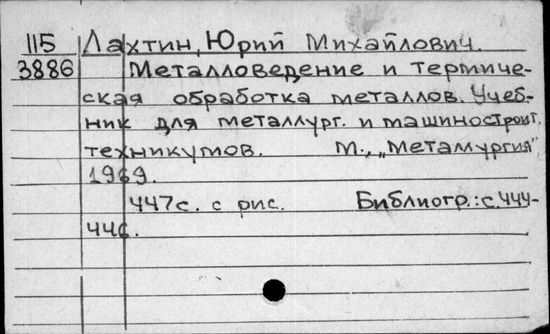 115 Лахтин, Юрий Михайлович.
3886 Металловедение и термиче-
ская обработка металлов. Учеб-
ник для металлург. и машиностроит.
техникумов. М., „Металлургия"
1969.
447с. с рис. Библиогр.: с. 444-
446.